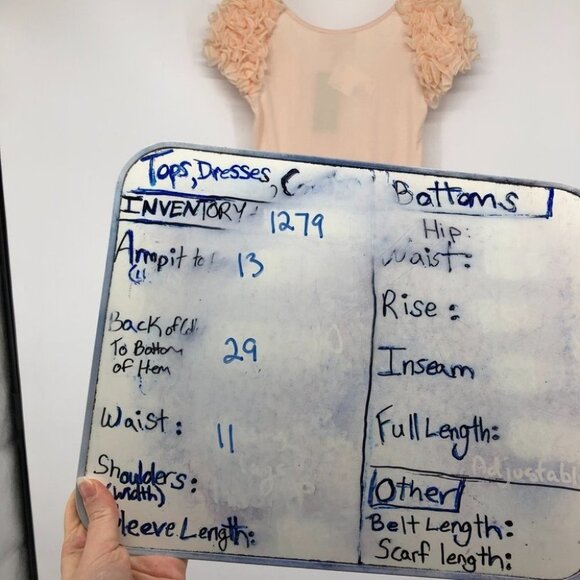 Tops, Dresses,
INVENTORY: 1279
Armpit to 13
Back of
To Bottom 29
of Hem
Waist: 11
Shoulders:
(width)
Sleeve Length:
Bottoms
Hip:
Waist:
Rise:
Inseam
Full Length:
Adjustabl
Other
Belt Length:
Scarf length: